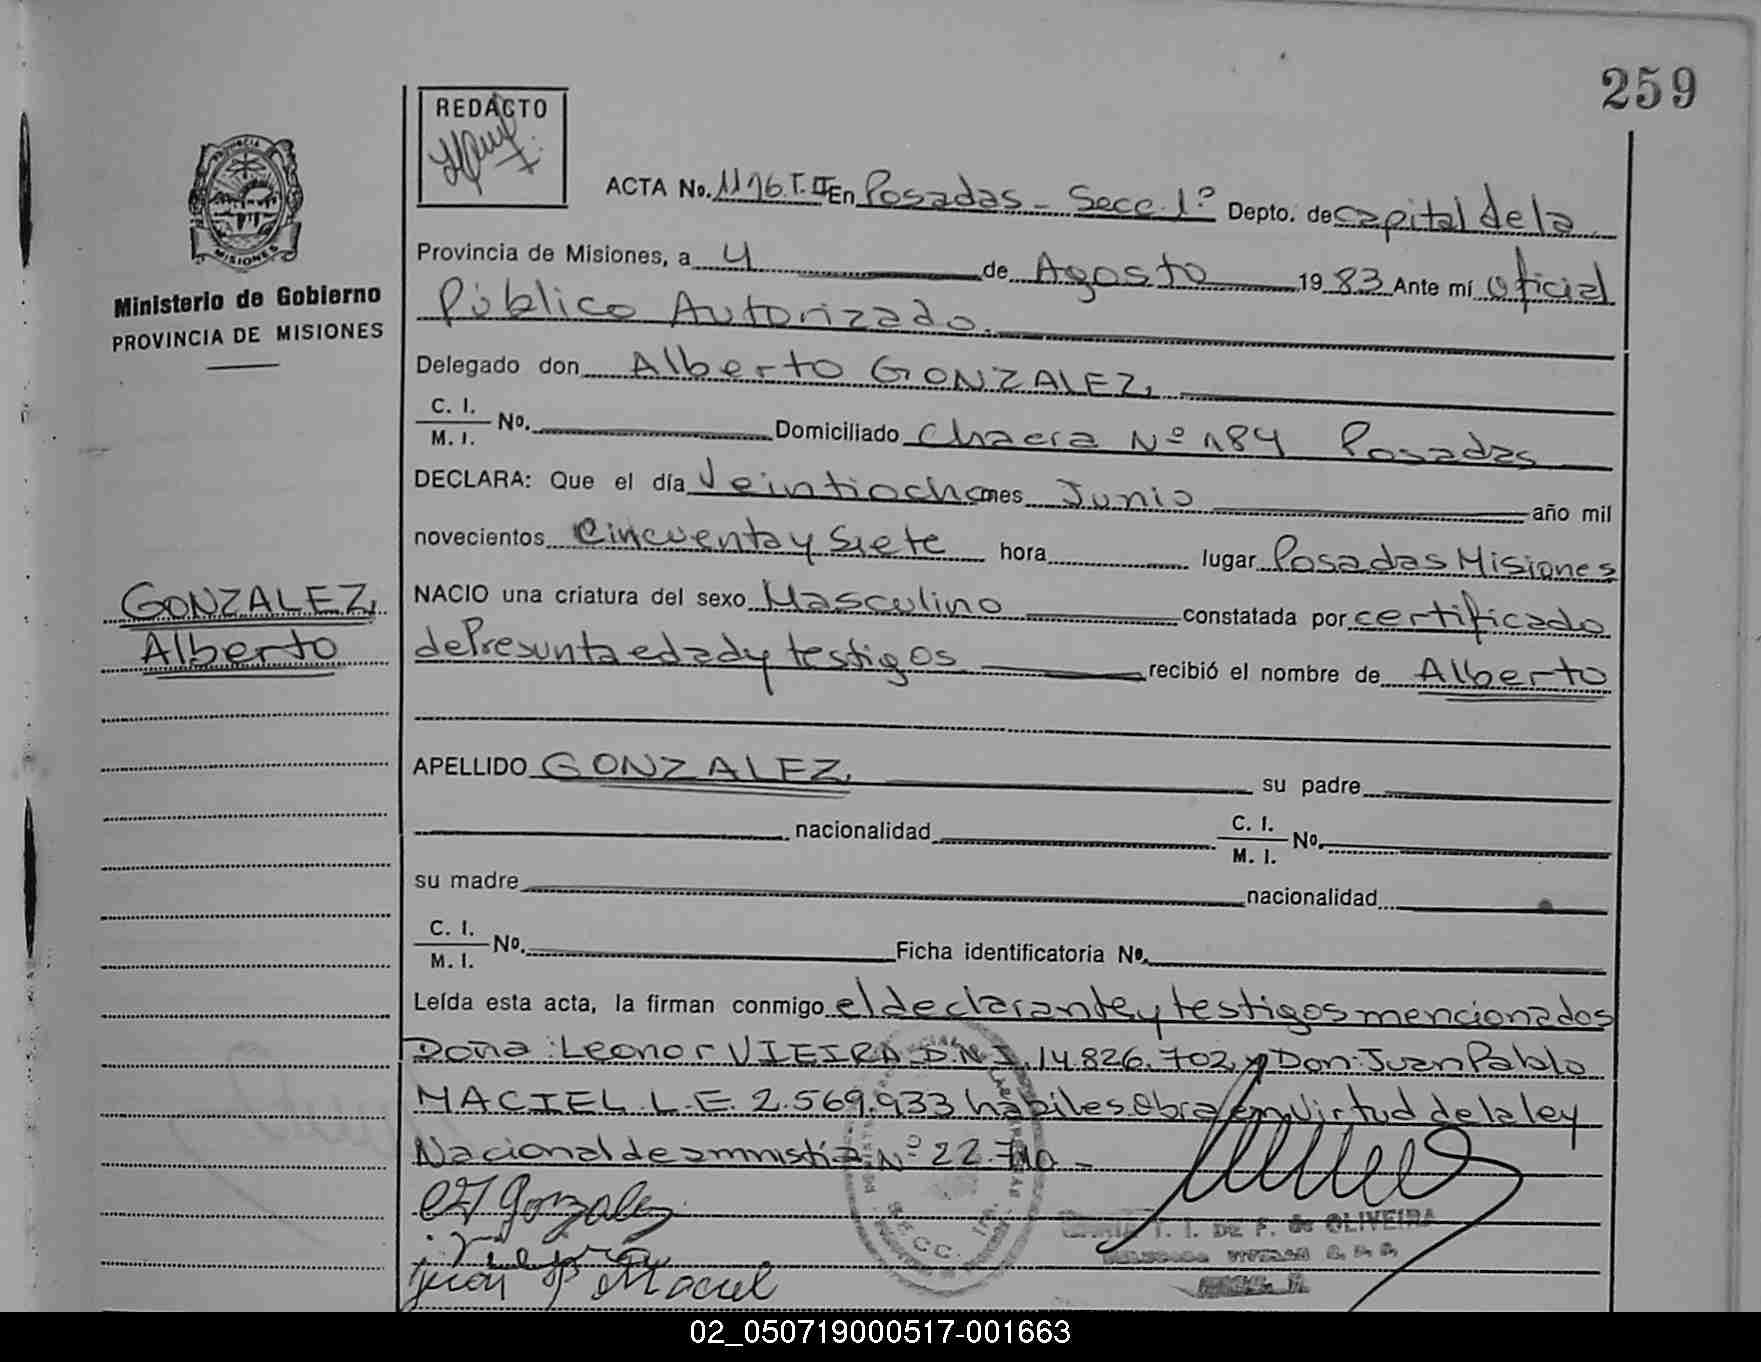 259
REDACTO
ACTA No. 1176 T. II En Posadas - Secc. 1º Depto. de Capital de la
Provincia de Misiones, a 4 de Agosto 1983 Ante mí Oficial
Público Autorizado.
Delegado don Alberto GONZALEZ,
C. I.
M. I. No. Domiciliado Chacra Nº 184 Posadas
DECLARA: Que el día Veintiocho mes Junio año mil
novecientos Cincuenta y Siete hora lugar Posadas Misiones
NACIO una criatura del sexo Masculino constatada por certificado
de Presunta edad y testigos recibió el nombre de Alberto
APELLIDO GONZALEZ, su padre
nacionalidad C. I.
M. I. No.
su madre nacionalidad
C. I.
M. I. No. Ficha identificatoria No.
Leída esta acta, la firman conmigo el declarante y testigos mencionados
Doña: Leonor VIEIRA D.N.I. 14.826.702 y Don: Juan Pablo
MACIEL L.E. 2.569.933 hábiles. Obra en Virtud de la ley
Nacional de amnistía Nº 22.710 -
Gonzalez
Juan P Maciel
T. I. DE F. de OLIVEIRA
PROVINCIA
MISIONES
Ministerio de Gobierno
PROVINCIA DE MISIONES
GONZALEZ,
Alberto
02_050719000517-001663